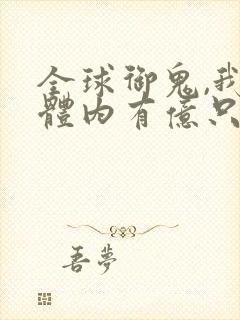 全球御鬼,我
體內有億只
吾夢